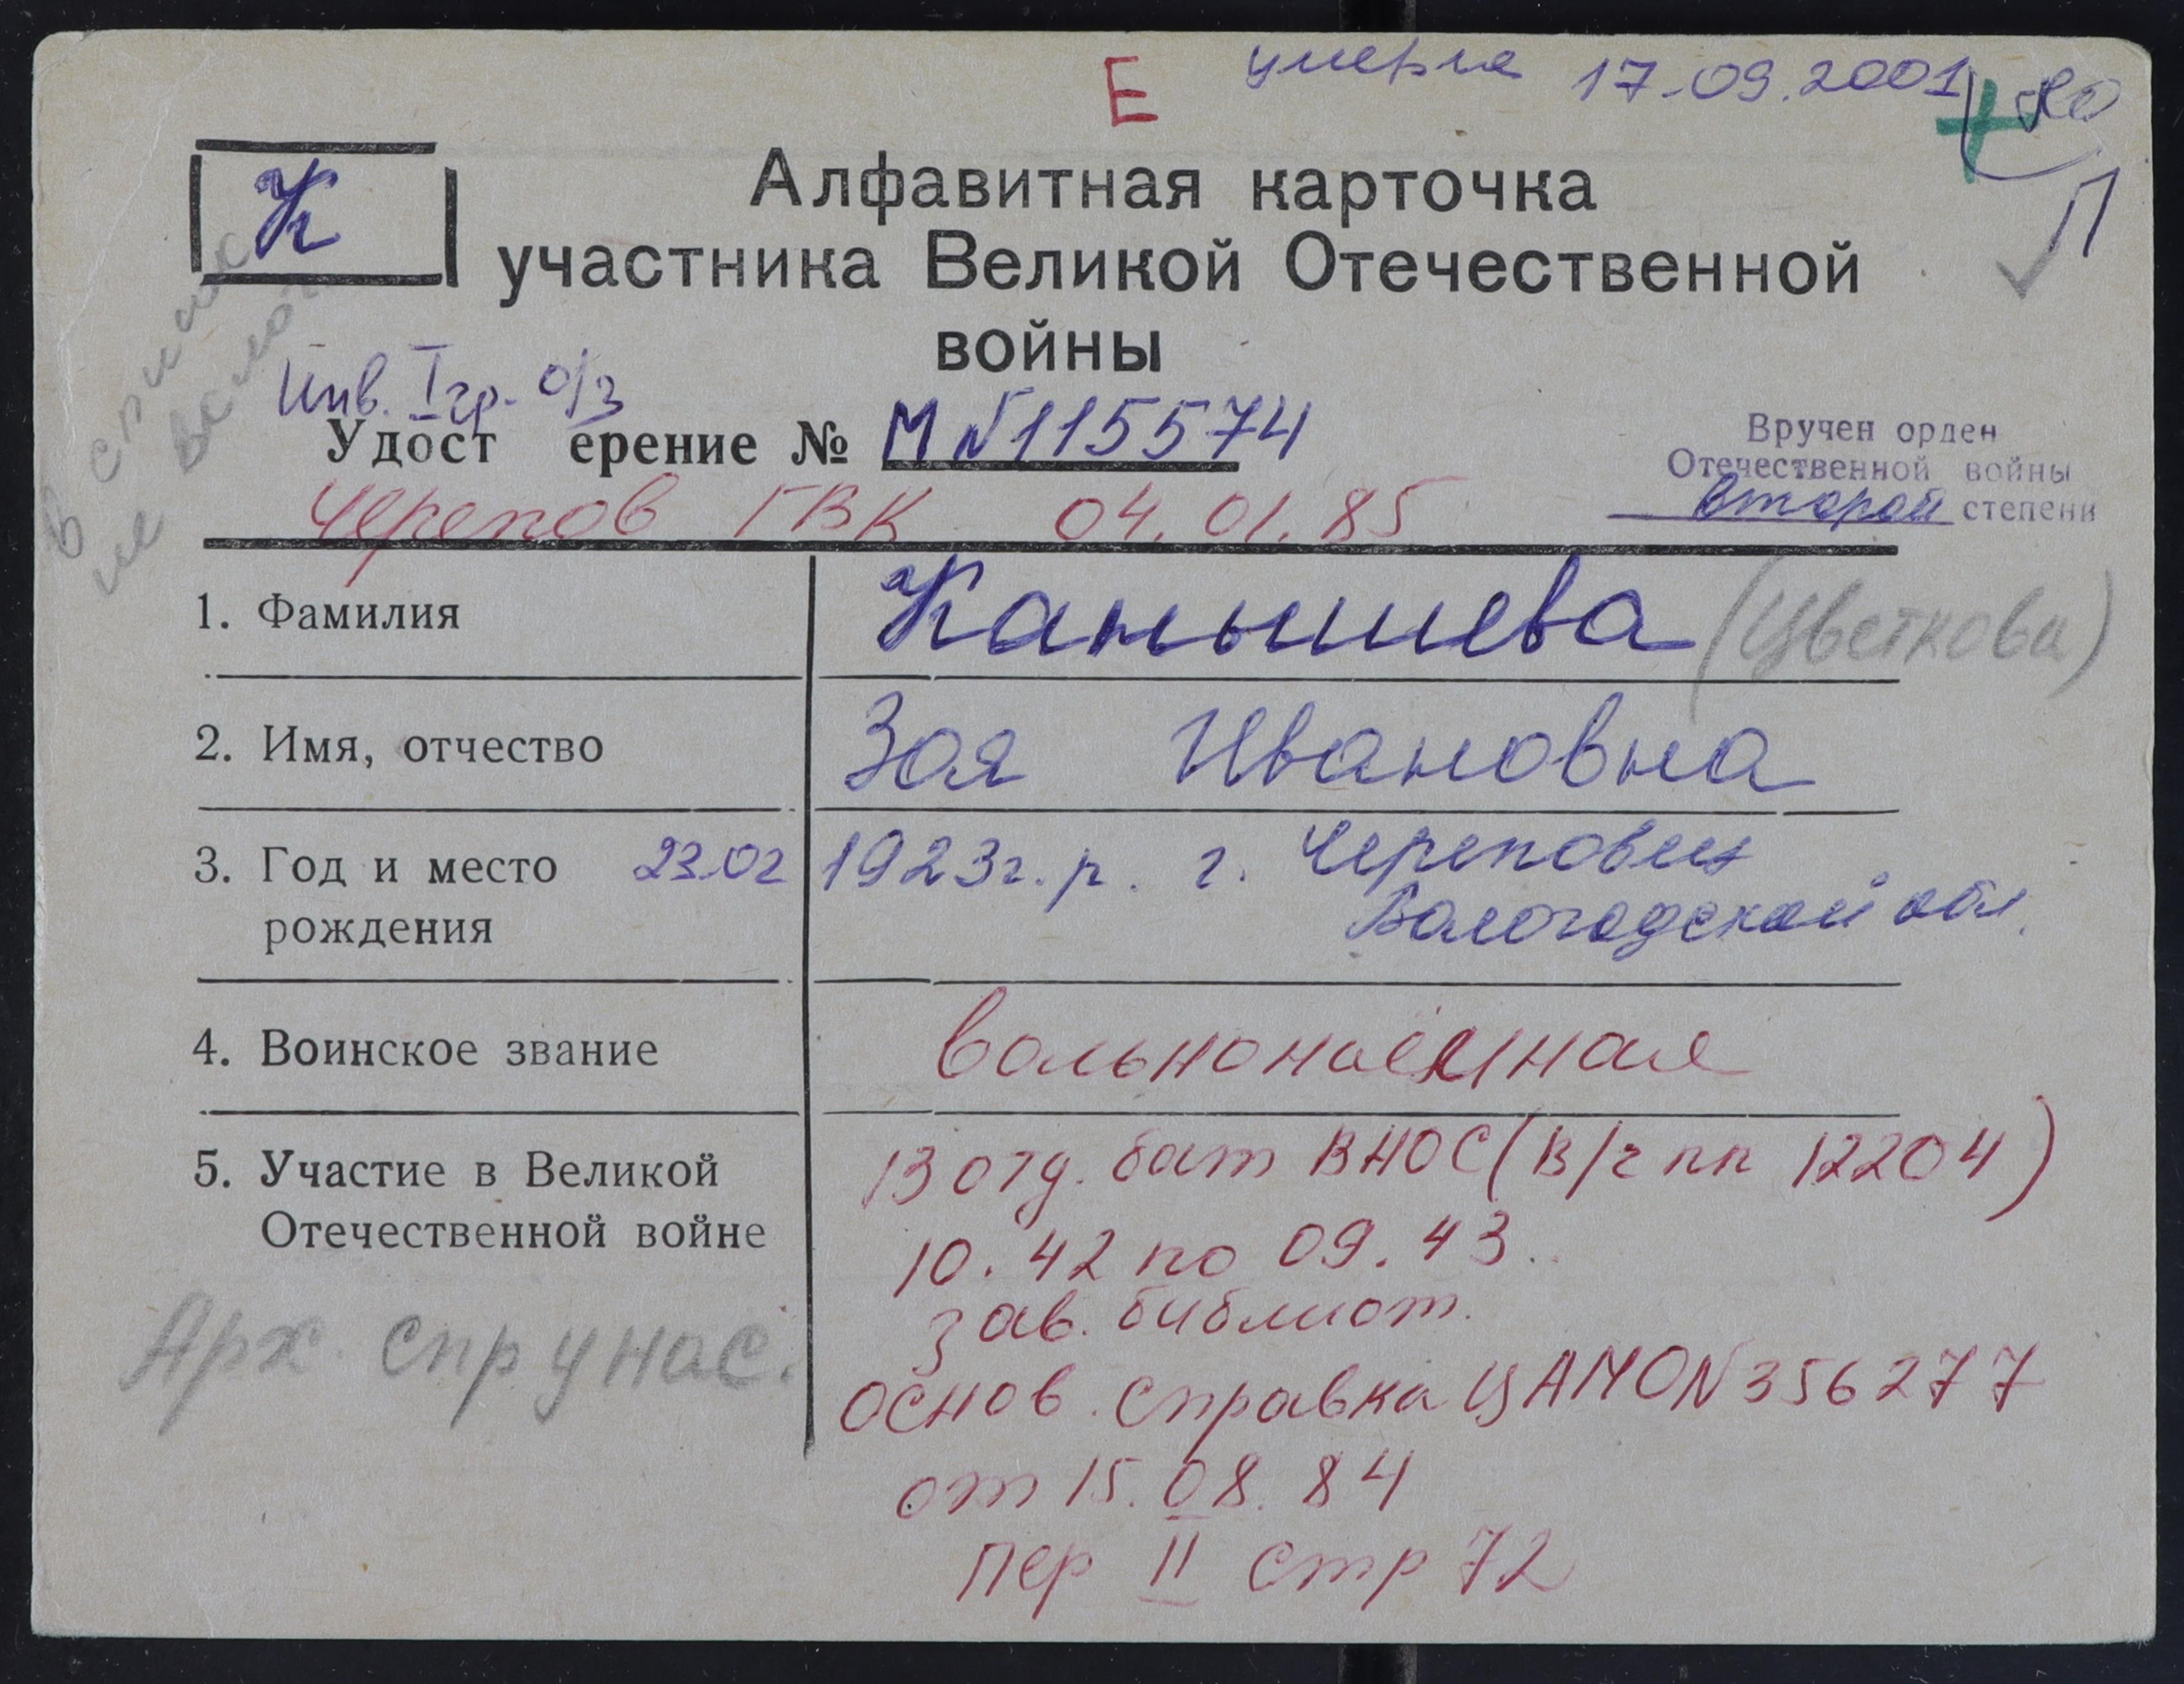 Е умерла 17.09.2001
К
Алфавитная карточка
участника Великой Отечественной
войны
в списке
не
Инв. I гр. о/з
Удост ерение № М N 115574
Вручен орден
Отечественной войны
второй степени
Черепов ГВК 04.01.85
1. Фамилия Камышева (Цветкова)
2. Имя, отчество Зоя Ивановна
3. Год и место 23.02 1923 г.р. г. Череповец
рождения Вологодской обл.
4. Воинское звание вольнонаёмная
5. Участие в Великой 13 отд. бат ВНОС (В/ч пп 12204)
Отечественной войне 10.42 по 09.43.
зав. библиот.
Арх. спр у нас.
Основ. справка ЦАМО N 356277
от 15.08.84
Пер II стр 72